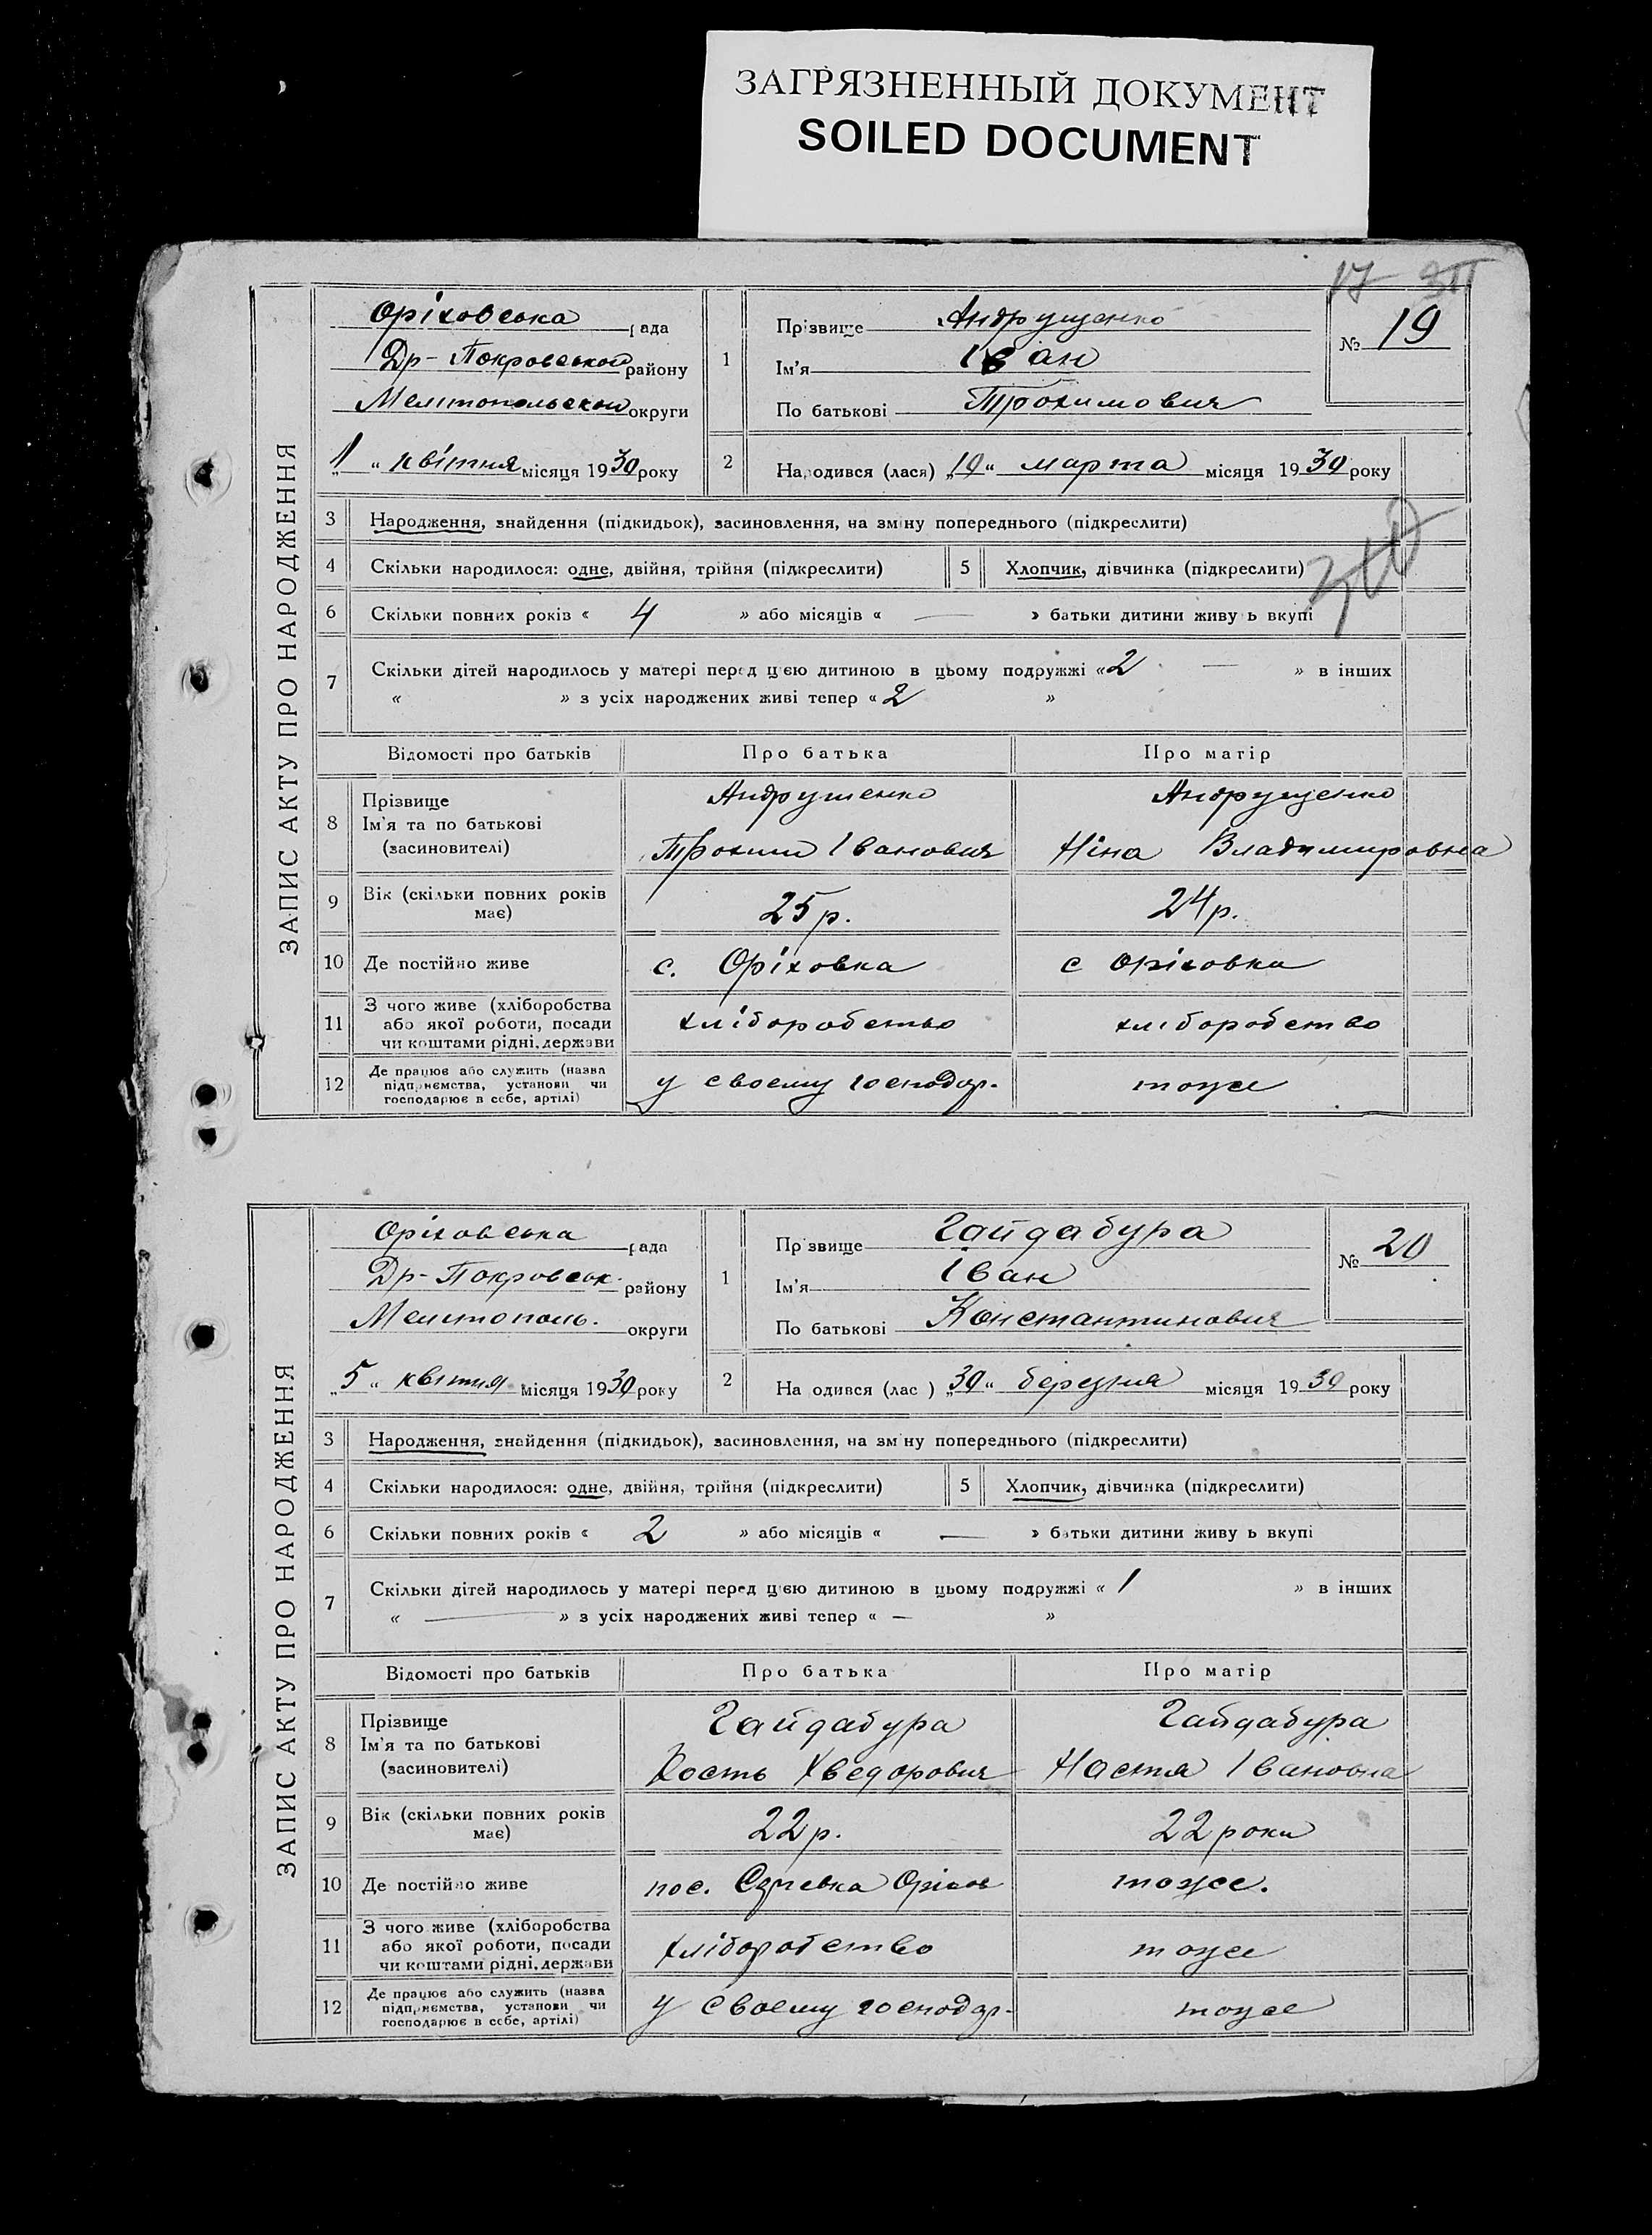 ЗАГРЯЗНЕННЫЙ ДОКУМЕНТ
SOILED DOCUMENT
17
ЗАПИС АКТУ ПРО НАРОДЖЕННЯ
Оріховська рада
Др-Покровської району
Мелитопольскои округи
„1“ квітня місяця 1930 року
1
Прізвище Андрущенко
Ім'я Іван
По батькові Трохимович
№ 19
2
Народився (лася) „10“ марта місяця 1930 року
3 Народження, знайдення (підкидьок), засиновлення, на зміну попереднього (підкреслити)
4 Скільки народилося: одне, двійня, трійня (підкреслити) 5 Хлопчик, дівчинка (підкреслити)
6 Скільки повних років « 4 » або місяців « — » батьки дитини живу ь вкупі
7 Скільки дітей народилось у матері перед цією дитиною в цьому подружжі «2 — » в інших
« » з усіх народжених живі тепер « 2 »
Відомості про батьків Про батька Про матір
8 Прізвище
Ім'я та по батькові
(засиновителі)
Андрушенко
Трохим Іванович
Андрущенко
Ніна Владимировна
9 Вік (скільки повних років має) 25 р. 24 р.
10 Де постійно живе с. Оріховка с Оріховка
11 З чого живе (хліборобства
або якої роботи, посади
чи коштами рідні, держави
хліборобство хліборобство
12 Де працює або служить (назва
підприємства, установи чи
господарює в себе, артілі)
у своему господар. тоже
ЗАПИС АКТУ ПРО НАРОДЖЕННЯ
Оріховська рада
Др-Покровськ. району
Мелитополь. округи
„5“ квітня місяця 1930 року
1
Пр звище Гайдабура
Ім'я Іван
По батькові Константинович
№ 20
2
На одився (лас ) „30“ березня місяця 1930 року
3 Народження, знайдення (підкидьок), засиновлення, на зм ну попереднього (підкреслити)
4 Скільки народилося: одне, двійня, трійня (підкреслити) 5 Хлопчик, дівчинка (підкреслити)
6 Скільки повних років « 2 » або місяців « — » батьки дитини живу ь вкупі
7 Скільки дітей народилось у матері перед цією дитиною в цьому подружжі « 1 » в інших
« — » з усіх народжених живі тепер « — »
Відомості про батьків Про батька Про матір
8 Прізвище
Ім'я та по батькові
(засиновителі)
Гайдабура
Кость Хведорович
Гайдабура
Настя Івановна
9 Вік (скільки повних років має) 22 р. 22 роки
10 Де постійно живе пос. Оріхов тоже.
11 З чого живе (хліборобства
або якої роботи, посади
чи коштами рідні, держави
хліборобство тоже
12 Де працює або служить (назва
підприємства, установи чи
господарює в себе, артілі)
у своему господар. тоже